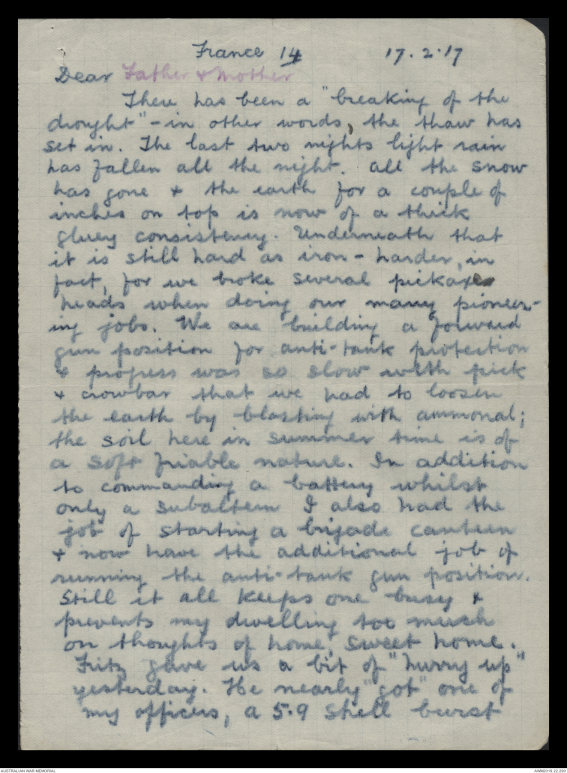 France 14 17.2.17
Dear Father & Mother
There has been a "breaking of the
drought" - in other words, the thaw has
set in. The last two nights light rain
has fallen all the night. all the snow
has gone & the earth for a couple of
inches on top is now of a thick
gluey consistency. Underneath that
it is still hard as iron - harder, in
fact, for we broke several pickaxe
heads when doing our many pioneer-
ing jobs. We are building a forward
gun position for anti-tank protection
& progress was so slow with pick
& crowbar that we had to loosen
the earth by blasting with ammonal;
the soil here in summer time is of
a soft friable nature. In addition
to commanding a battery whilst
only a subaltern I also had the
job of starting a brigade canteen
& now have the additional job of
running the anti-tank gun position.
Still it all keeps one busy &
prevents my dwelling too much
on thoughts of home, sweet home.
Fritz gave us a bit of "hurry up"
yesterday. He nearly "got" one of
my officers, a 5.9 shell burst
AUSTRALIAN WAR MEMORIAL